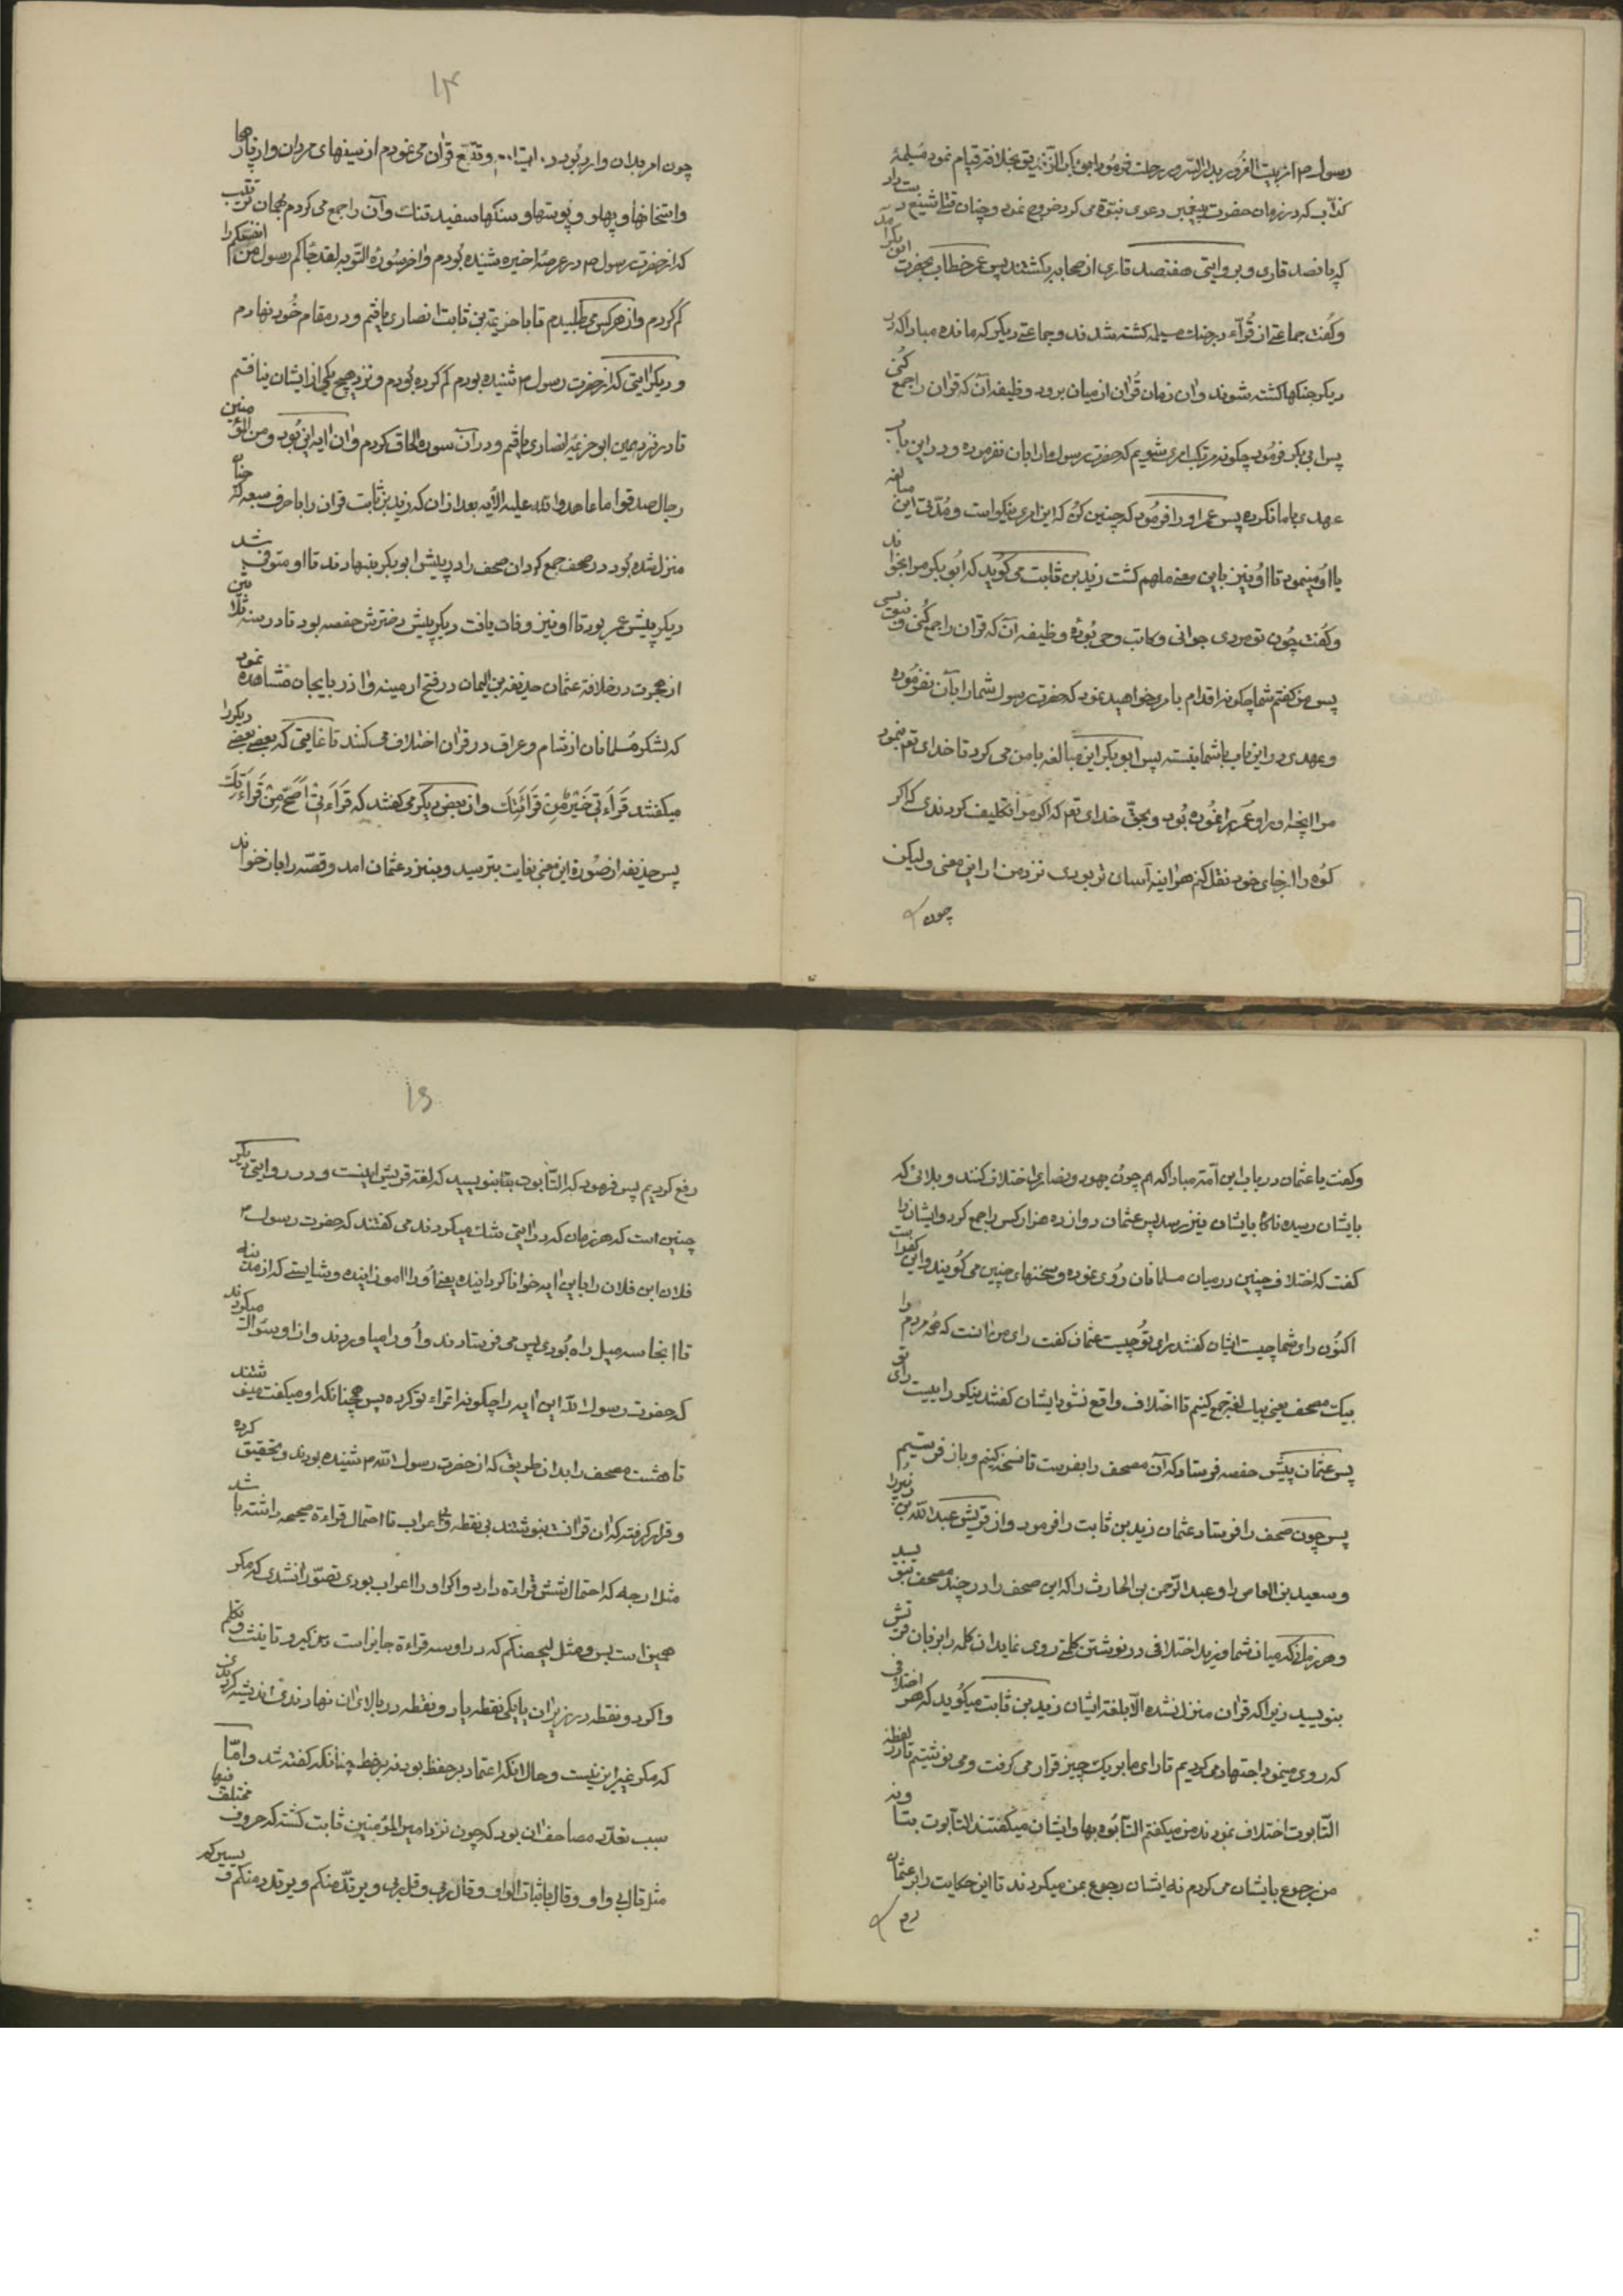 رسول م از بیت الغرور بدار السرور رحلت فرمود ابی بکر الصدیق بخلافة قیام نمود مسیلمهٔ
کذّاب که در زمان حضرت پیغمبر دعوی نبوّة می کرد خروج نمود و چنان قتل شنیع دست داد
که پانصد قاری و بروایتی هفتصد قاری از صحابه بکشتند پس عمر خطاب بحضرت ابو بکر آمد
و گفت جماعتی از قُرآء در جنك مسیلمه کشته شدند و جماعتی دیکر که مانده مبادا که در
دیکر جنکها کشته شوند و ان زمان قُران از میان برود وظیفه آنکه قران را جمع کُنی
پس ابی بکر فرمُود چکونه مرتکب امری شویم که حضرت رسول ما را بان نفرموده و در این باب
عهدی با ما نکرده پس عمر او را فرمُود که چنین کن که این امری نیکو است و مُدّتی این مبالغه
با او مینمود تا او نیز باین معنی ملهم کشت زید بن ثابت می کوید که ابُو بکر مرا بخواند
و کفت چُون تو مردی جوانی و کاتب وحی بُودهٔ وظیفه آن که قران را جمع کُنی و بنویسی
پس من کفتم شما چکونه اقدام بامری خواهید نمود که حضرت رسول شما را بآن نفرمُوده
و عهدی در این باب با شما نبسته پس ابو بکر این مبالغه با من می کرد تا خدای تعم نمود
مرا انچه او را و عمر را نمُوده بُود و بحقّ خدای تعم که اکر مرا تکلیف کردندی که اکر
کوُه را از جای خود نقل کنم هر اینه آسان تر بودی نزد من از این معنی و لیکن
چون
۱۴
چون امر بدان وارد بُود و تتبّع قران می نمودم از سینهای مردان و از پارها
و استخانها و پهلو و پوستها و سنکها سفید تنك و آن را جمع می کردم بهمان ترتیب
که از حضرت رسول م در عرضهٔ اخیره شنیده بُودم و اخر سُورهٔ التوبه لقد جاکم رسول من انفسکم را
کم کردم و از هر کس می طلبیدم تا با خزیمة بن ثابت انصاری یافتم و در مقام خُود نهادم
و دیکر ایتی که از حضرت رسول م شنیده بودم کم کرده بُودم و نزد هیچ یکی از ایشان نیافتم
تا در نزد همین ابو خزیمهٔ انصاری یافتم و در آن سوره الحاق کردم و ان ایه این بُود و من المؤمنین
رجال صدقوا ما عاهدوا الله علیه الایه بعد از ان که زید بن ثابت قران را باحرف سبعه که چنان
منزل شده بُود در صحف جمع کرد ان صحف را در پیش ابو بکر بنهادند تا او متوفی شد
دیکر پیش عمر بود تا او نیز وفات یافت دیکر پیش دخترش حفصه بود تا در سنه ثلاثین
از هجرت در خلافة عثمان حذیفة بن الیمان در فتح ارمینه و اذربایجان مشاهده نمود
که لشکر مُسلمانان از شام و عراق در قران اختلاف می کنند تا غایتی که بعضی بعضی دیکر را
میکفتند قَرآءَتی خَیْرٌ مِنْ قَرآءتِكَ و ان بعض دیکر می کفتند که قَرآءَتی اَصَحّ مِنْ قَرآءَتِكَ
پس حذیفه از صُورة این معنی بغایت بترسید و بنزد عثمان امد و قصّه را باز خواند
و کفت یا عثمان در یاب این اُمّة مبادا که هم چون یهود و نصاری اختلاف کنند و بلائی که
بایشان رسیده ناکاه بایشان نیز برسد پس عثمان دوازده هزار کس را جمع کرد و ایشان را
کفت که اختلاف چنین در میان مسلمانان رُوی نموده و سخنهای چنین می کویند و این کفر است
اکنُون رای شما چیست ایشان کفتند رای تو چیست عثمان کفت رای من انست که همه مردم را
بیك مصحف یعنی بیك لغة جمع کنیم تا اختلاف واقع نشود ایشان کفتند نیکو رأییست رای تو
پس عثمان پیش حفصه فرستاد که آن مصحف را بفرست تا نسخه کنیم و باز فرستیم
پس چون صحف را فرستاد عثمان زید بن ثابت را فرمود و از قریش عبد الله بن زُبیر را
و سعید بن العاص را و عبد الرّحمن بن الحارث را که این صحف را در چند مصحف بنویسید
و هر زمان که میان شما و زید اختلافی در نوشتن کلمتی روی نماید ان کلمه را بزبان قریش
بنویسید زیرا که قران منزل نشده الّا بلغة ایشان زید بن ثابت میکُوید که هر اختلافی
که روی مینمود اجتهاد می کردیم تا رای ما بر یك چیز قرار می کرفت و می نوشتیم تا در لفظه
التّابوت اختلاف نمودند من میکفتم التآبُوه بها و ایشان میکفتند التآبوت بتا و نه
من رجوع بایشان می کردم نه ایشان رجوع بمن میکردند تا این حکایت را بر عثمان
رفع
۱۵
رفع کردیم پس فرمود که التّابوت بتا بنویسید که لغة قریش اینست و در روایتی دیکر
چنین است که هر زمان که در ایتی شك میکردند می کفتند که حضرت رسول م
فلان ابن فلان را باین ایه خوانا کردانیده یعنی اُو را اموزانیده و شایستی که از مدینه
تا انجا سه میل راه بُودی پس می فرستادند و اُو را میاوردند و از او سُوال میکردند
که حضرت رسول الله این ایه را چکونه اقراء تو کرده پس همچنانکه او میکفت مینوشتند
تا هشت مصحف را بدان طریق که از حضرت رسول الله م شنیده بودند و تحقیق کرده
و قرار کرفته که ان قرانت بنوشتند بی نقطه و بی اعراب تا احتمال قراءة صحیحه داشته باشد
مثل ارجه که احتمال شش قراءة دارد و اکر او را اعراب بودی تصوّر انشدی که مکر
همین است بس و مثل لیحصنکم که در او سه قراءة جایز است تذکیر و تانیث و تکلم
و اکر دو نقطه در زیر ان یا یکی نقطه یا دو نقطه در بالای ان نهادندی اندیشه کردندی
که مکر غیر این نیست و حال انکه اعتماد بر حفظ بود نه بر خط چنانکه کفته شد و امّا
سبب تعدّد مصاحف ان بود که چون نزد امیر المؤمنین ثابت کشته که حروف مختلف فیها
مثل قال بی واو و وقال باثبات الواو و قال ربی و قل ربی و یرتدّ منکم و یرتدد منکم